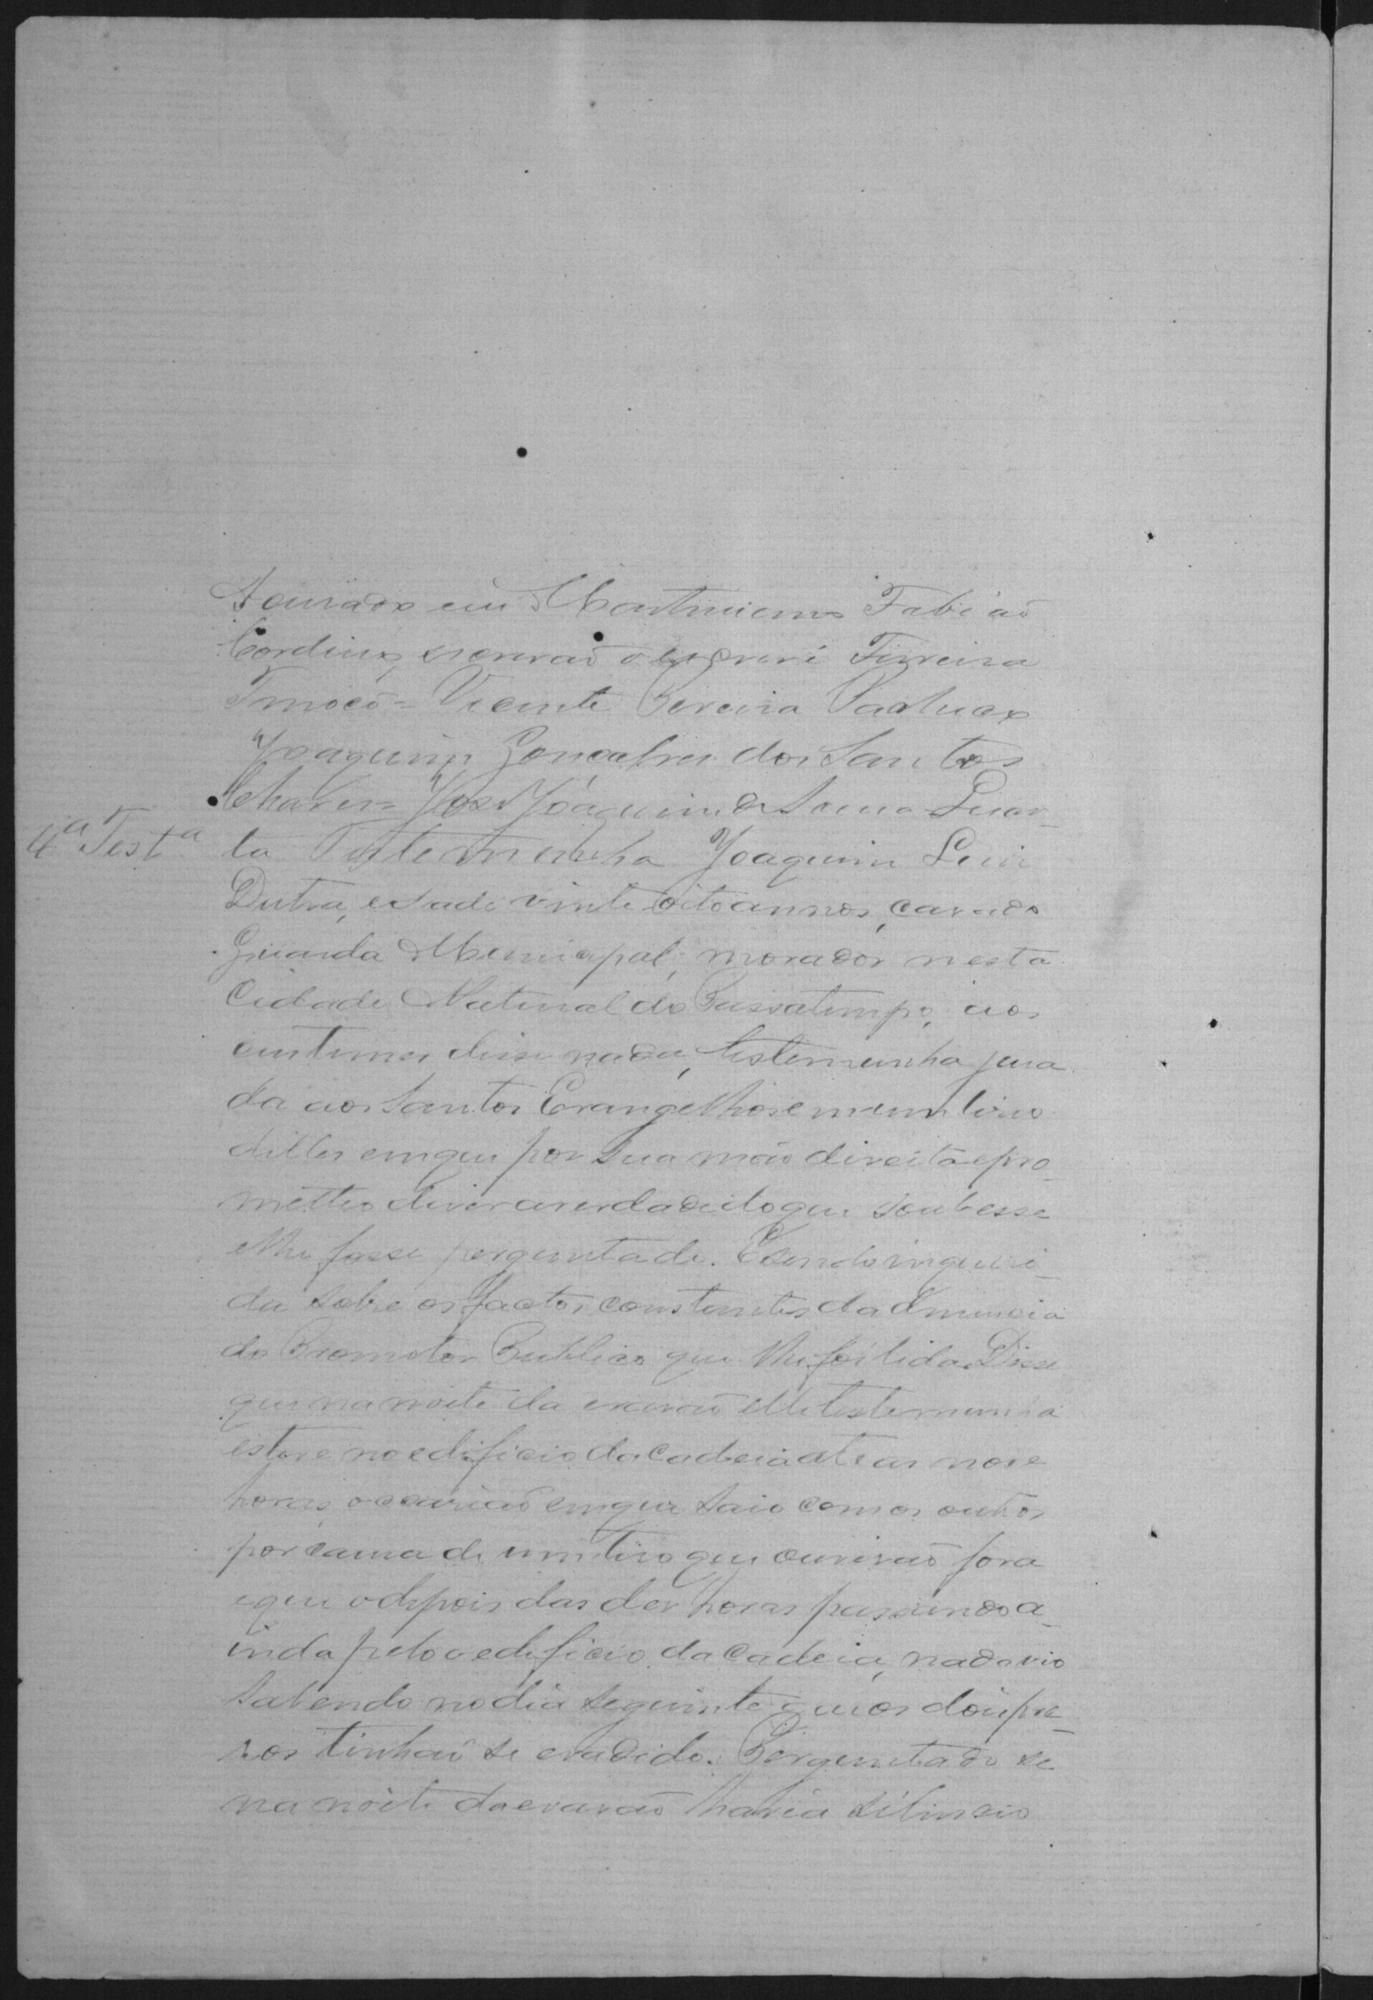 Acuzado eu Martiniano Fabião
Cordeiro, escrivão o escrevi Ferreira
Tinoco = Vicente Pereira
Joaquim Gonçalves dos Santos
Chaves = José Joaquim de Quar-
4ª Testª
ta Testemunha Joaquim Luis
Dutra, edade vinte oito annos, casado
Guarda Municipal, morador nesta
Cidade Natural do Passatempo, aos
custumes disse nada, testemunha jura
da aos Santos Evangelhos em um livro
delles em que por sua mão direita e pro-
metteo diser a verdade do que soubesse
e lhe fosse perguntado. E sendo inqueri-
da sobre os factos constantes da denuncia
do Promotor Publico que lhe foi lida. Disse
que na noite da evasão elle testemunha
esteve no edificio da Cadeia até as nove
horas, occasião em que saio com os outros
por causa de um tiro que ouvirão fora
e que depois das des horas passando a-
inda pelo edificio da Cadeia, nada vio
sabendo no dia seguinte que os dois pre-
sos tinhão se evadido. Perguntado se
na noite da evasão havia silencio